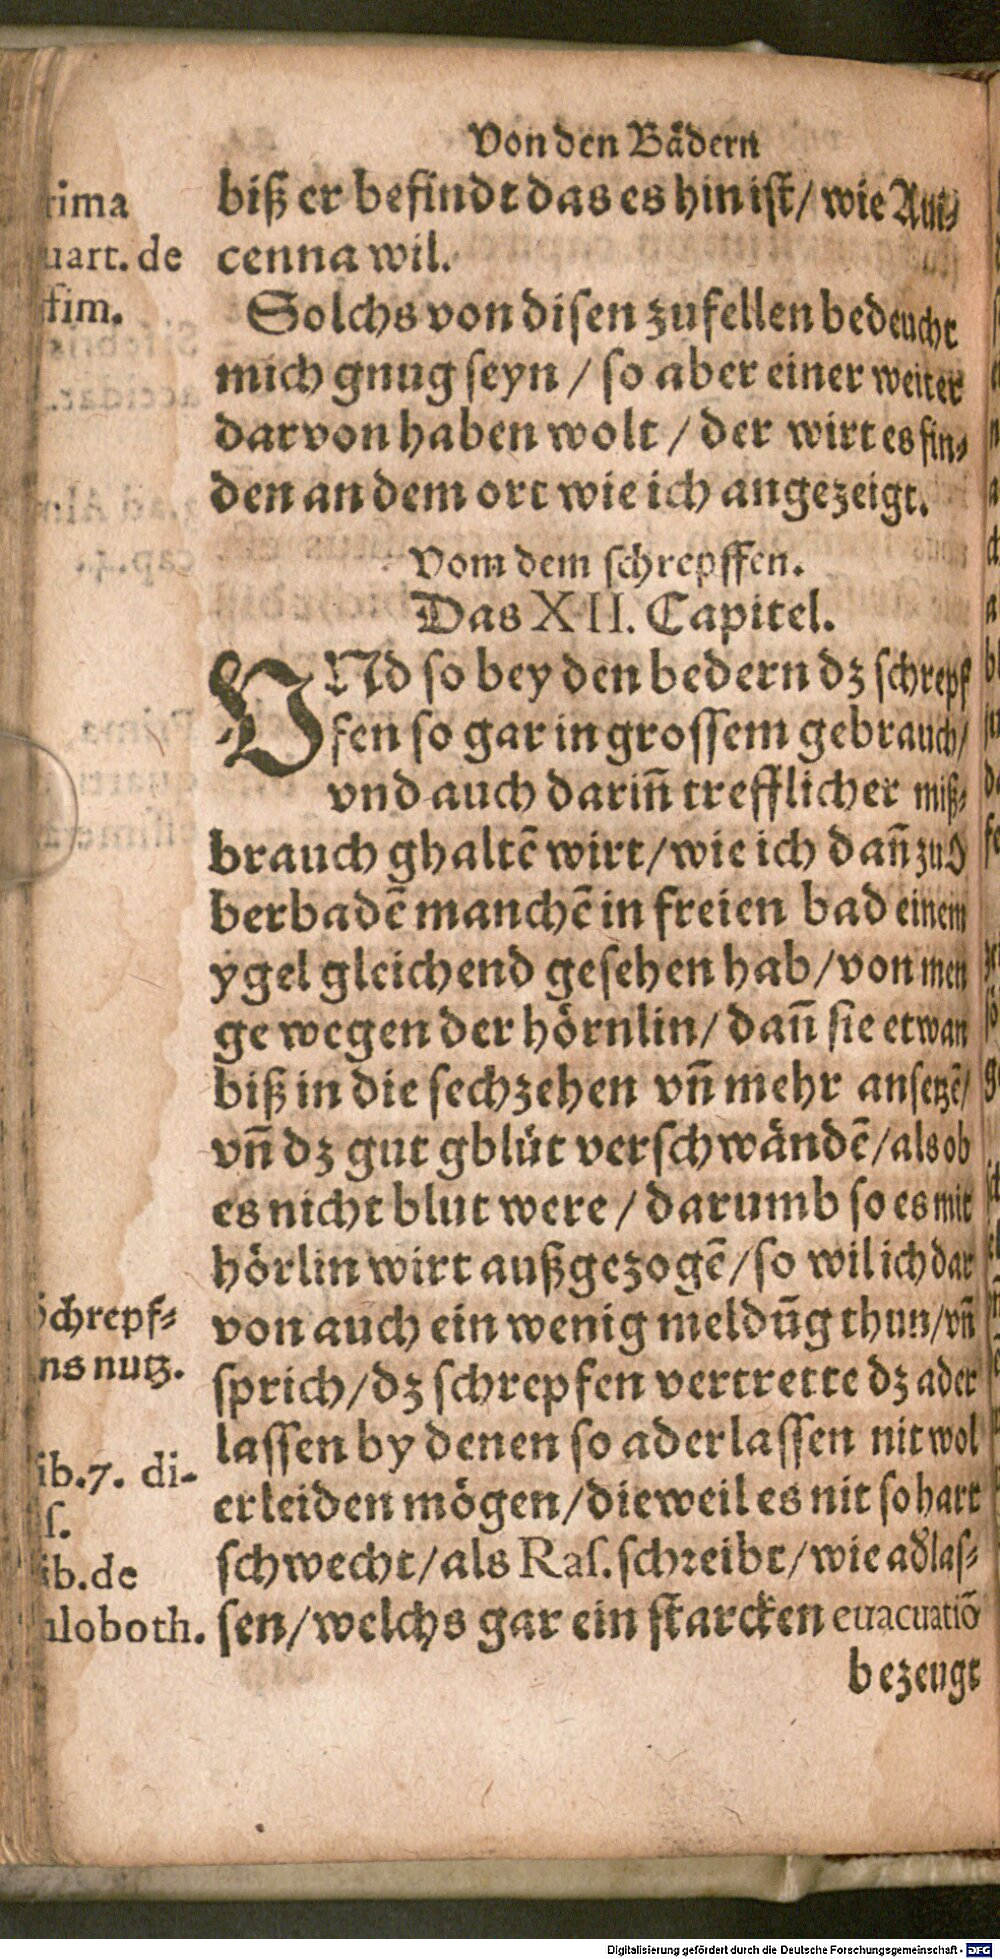 Von den Bädern
biß er befindt das es hin ist/ wie Aui⸗
cenna wil.
Solchs von disen zufellen bedeucht
mich gnug seyn / so aber einer weiter
darvon haben wolt / der wirt es fin⸗
den an dem ort wie ich angezeigt.
Vom dem schrepffen.
Das XII. Capitel.
VNd so bey den bedern dz schrepf
fen so gar in grossem gebrauch/
vnd auch dariñ trefflicher miß⸗
brauch ghaltē wirt/wie ich dañ zu O
berbadē manchē in freien bad einem
ygel gleichend gesehen hab/von men
ge wegen der hörnlin/ dañ sie etwan
biß in die sechzehen vñ mehr ansetzē/
vñ dz gut gblüt verschwändē/als ob
es nicht blut were / darumb so es mit
hörlin wirt außgezogē/so wil ich dar
von auch ein wenig meldūg thun/vñ
sprich/dz schrepfen vertrette dz ader
lassen by denen so aderlassen nit wol
erleiden mögen/dieweil es nit so hart
schwecht/als Ras. schreibt/wie adlas⸗
sen/welchs gar ein starcken euacuatiō
bezeugt
rima
uart. de
fim.
Schrepf⸗
ns nutz.
ib.7. di-
s.
ib.de
loboth.
Digitalisierung gefördert durch die Deutsche Forschungsgemeinschaft - DFG